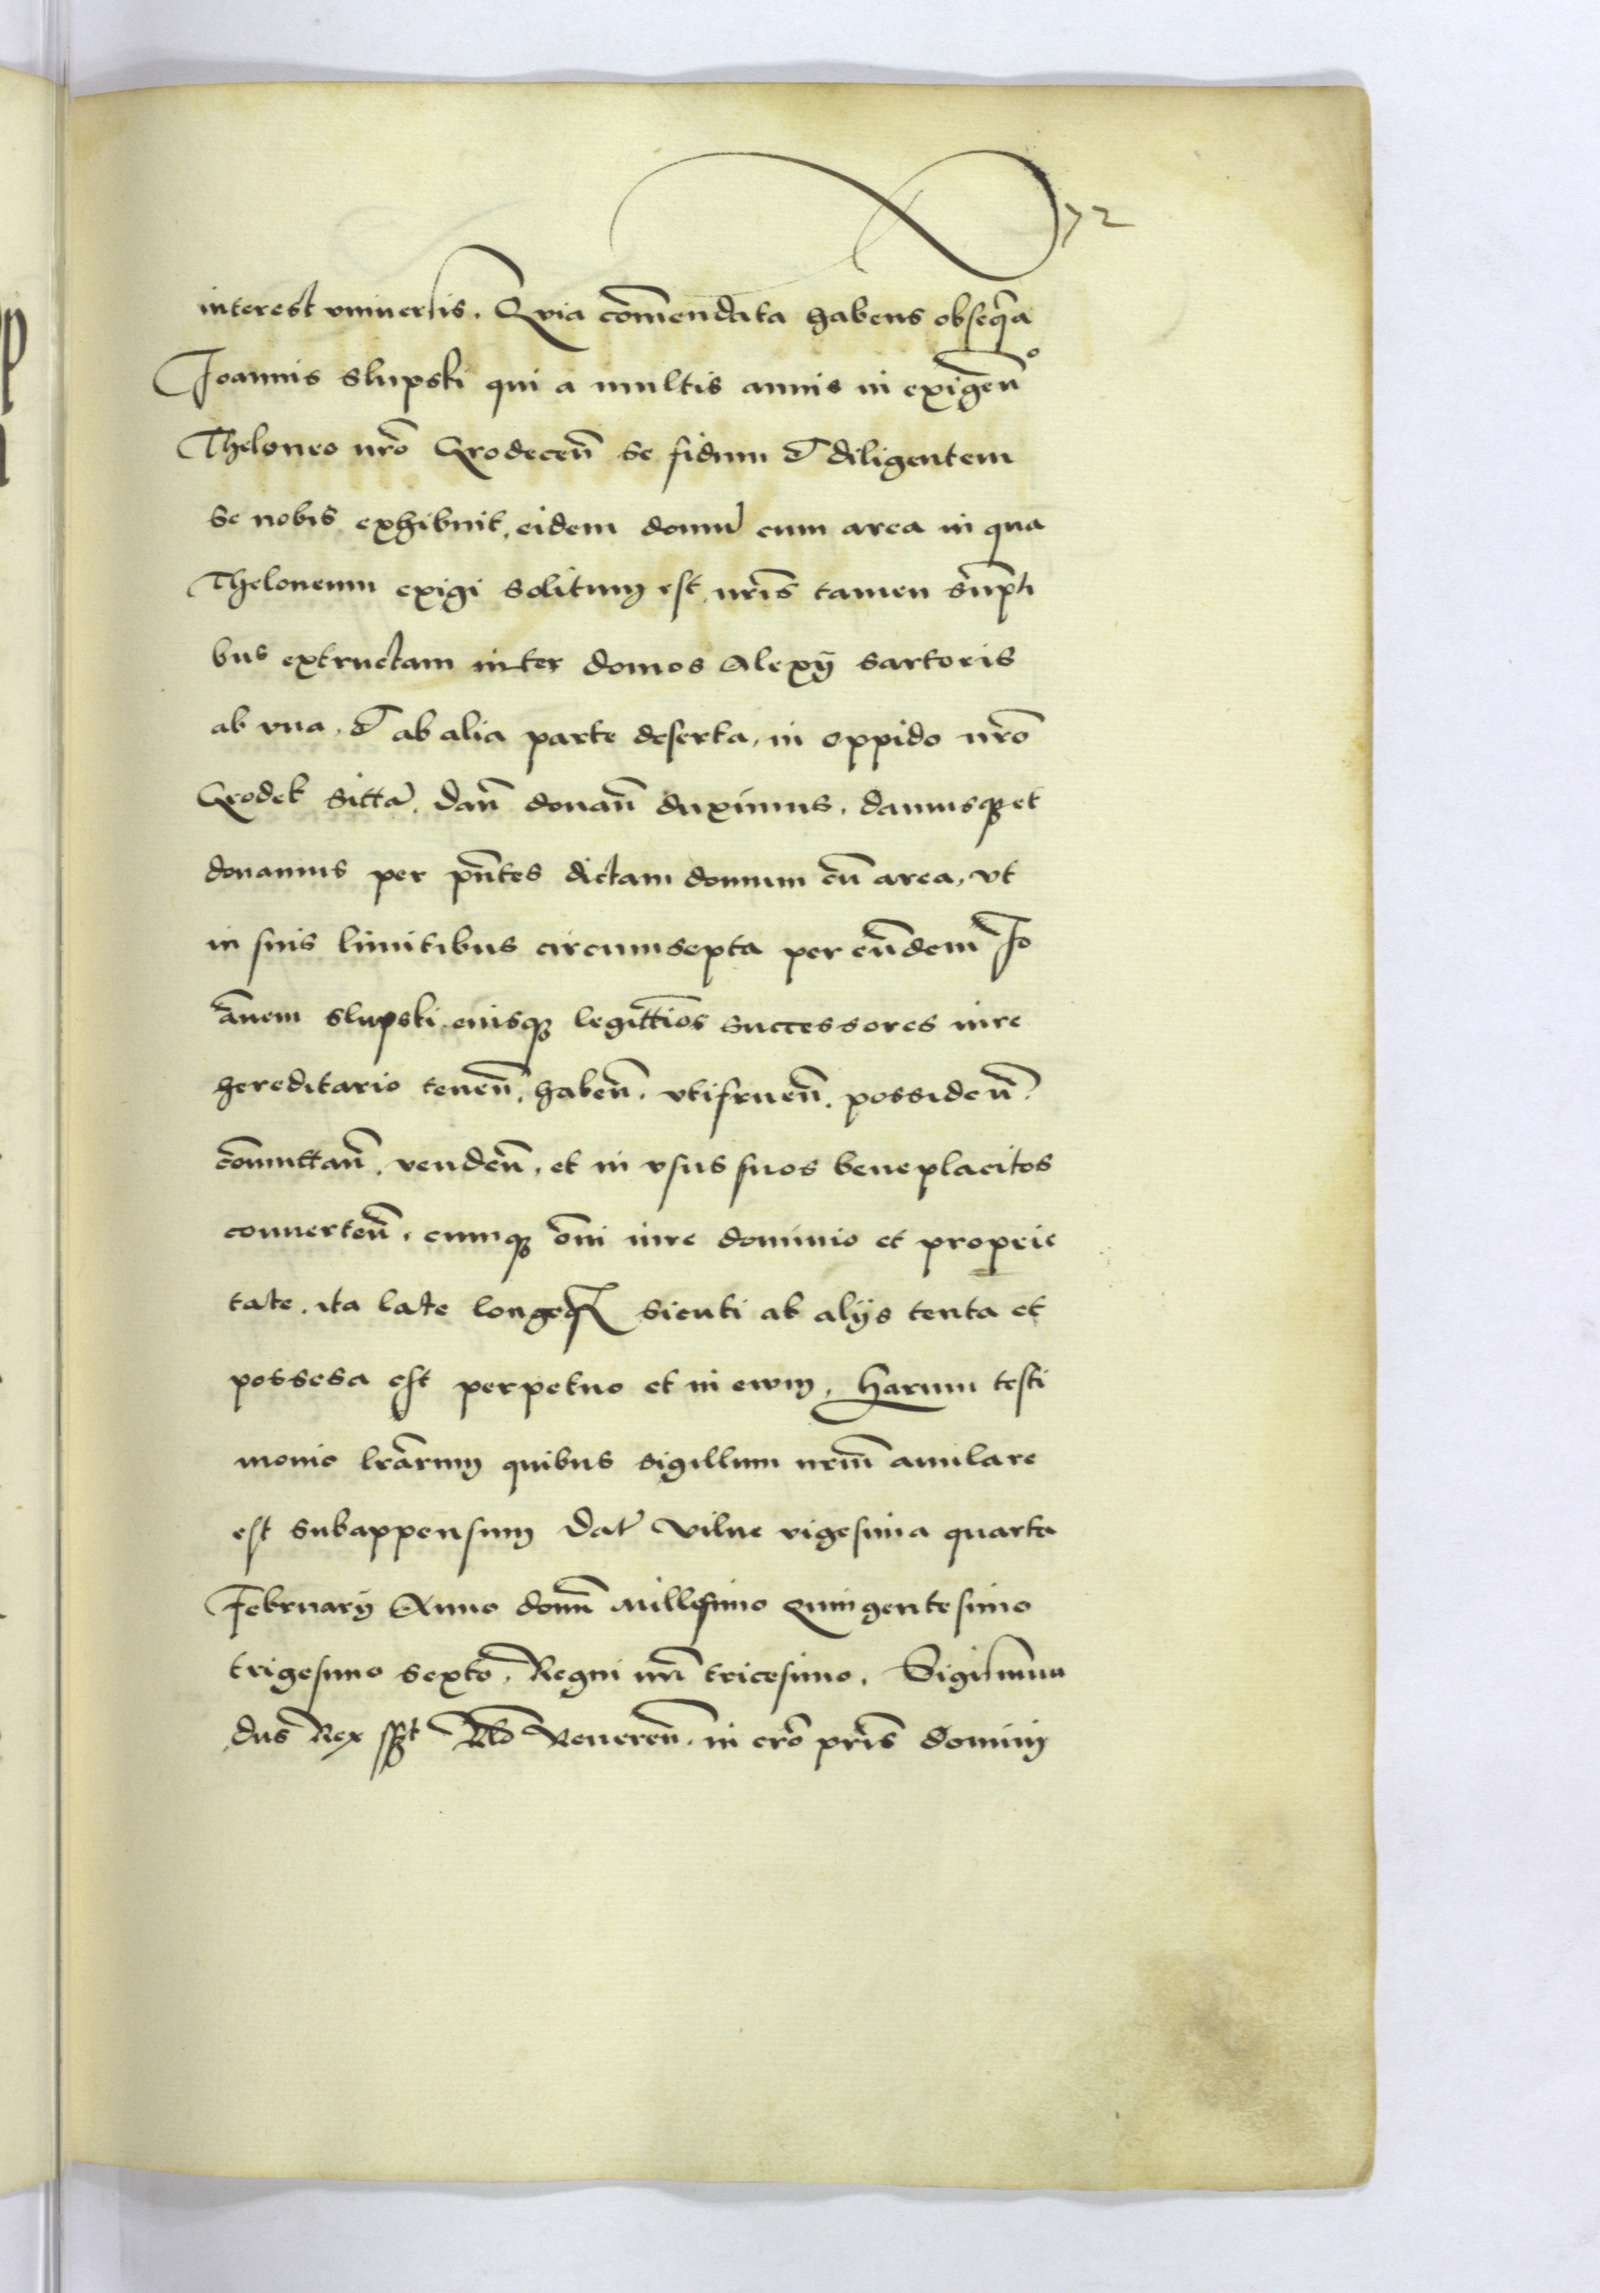 72
interest vniuersis. Qvia com̄endata habens obseq̄a
Joannis Slupski qui a multis annis in exigen̄o
Theloneo nrō Grodecen̄ se fidum et diligentem
se nobis exhibuit, eidem domū cum area in qua
Theloneum exigi solitum est, nrīs tamen sūmpti
bus extructam inter domos Alexÿ sartoris
ab vna, et ab alia parte deserta, in oppido nrō
Grodek sittā. dan̄ donan̄ duximus. damusq; et
donamus per pn̄tes dictam domum cū area, vt
in suis limitibus circumsepta per eūndem Jo
ānem Slupski, eiusq; legittīos successores iure
hereditario tenen̄. haben̄. vtifruen̄. possiden̄.
com̄uttan̄. venden̄. et in vsus suos beneplacitos
conuerten̄. cumq; om̄i iure dominio et proprie
tate. ita late longeq; sicuti ab alijs tenta et
possesa est perpetuo et in ewm. Harum testi
monio lrārum quibus sigillum nrūm anulare
est subappensum Dat Vilne vigesima quarta
February Anno domī Millesimo Quingentesimo
trigesimo sexto. Regni nrī tricesimo. Sigismun
dus Rex sspt Ad Veneren̄. in cro prīs dominj